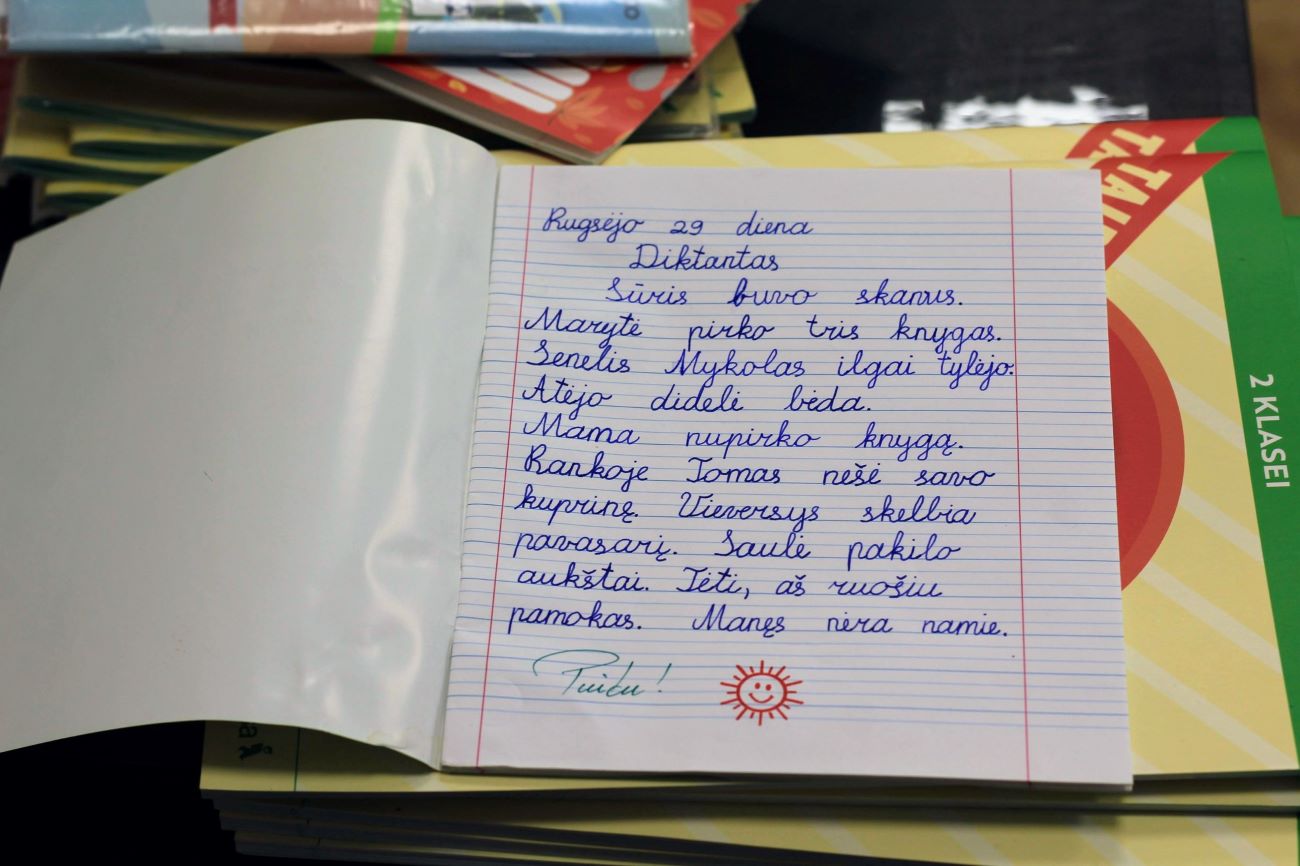 Rugsėjo 29 diena
Diktantas
Sūris buvo skanus.
Marytė pirko tris knygas.
Senelis Mykolas ilgai tylėjo.
Atėjo didelė bėda.
Mama nupirko knygą.
Rankoje Tomas nešė savo
kuprinę. Vieversys skelbia
pavasarį. Saulė pakilo
aukštai. Tėti, aš ruošiu
pamokas. Manęs nėra namie.
Puiku!
2 KLASEI